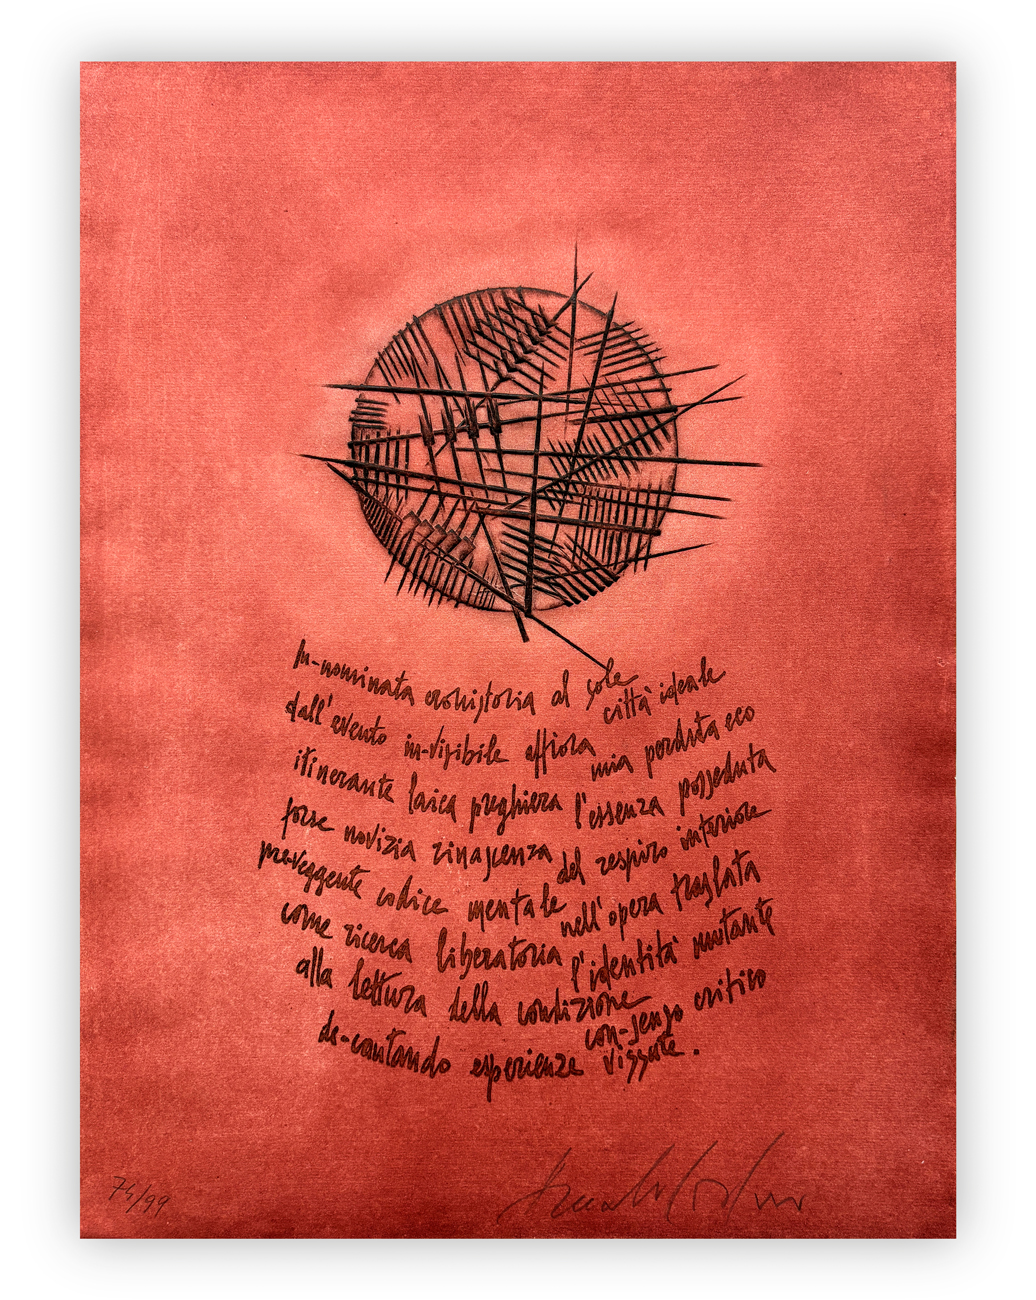 In-nominata crohistoria al sole città ideale
dall'evento in-visibile affiora mia perduta eco
itinerante laica preghiera l'essenza posseduta
forse novizia rinascenza del respiro inferiore
pre-veggente codice mentale nell'opera traslata
come ricerca liberatoria l'identità mutante
alla lettura della condizione con-senso critico
de-cantando esperienze vissute.
74/99